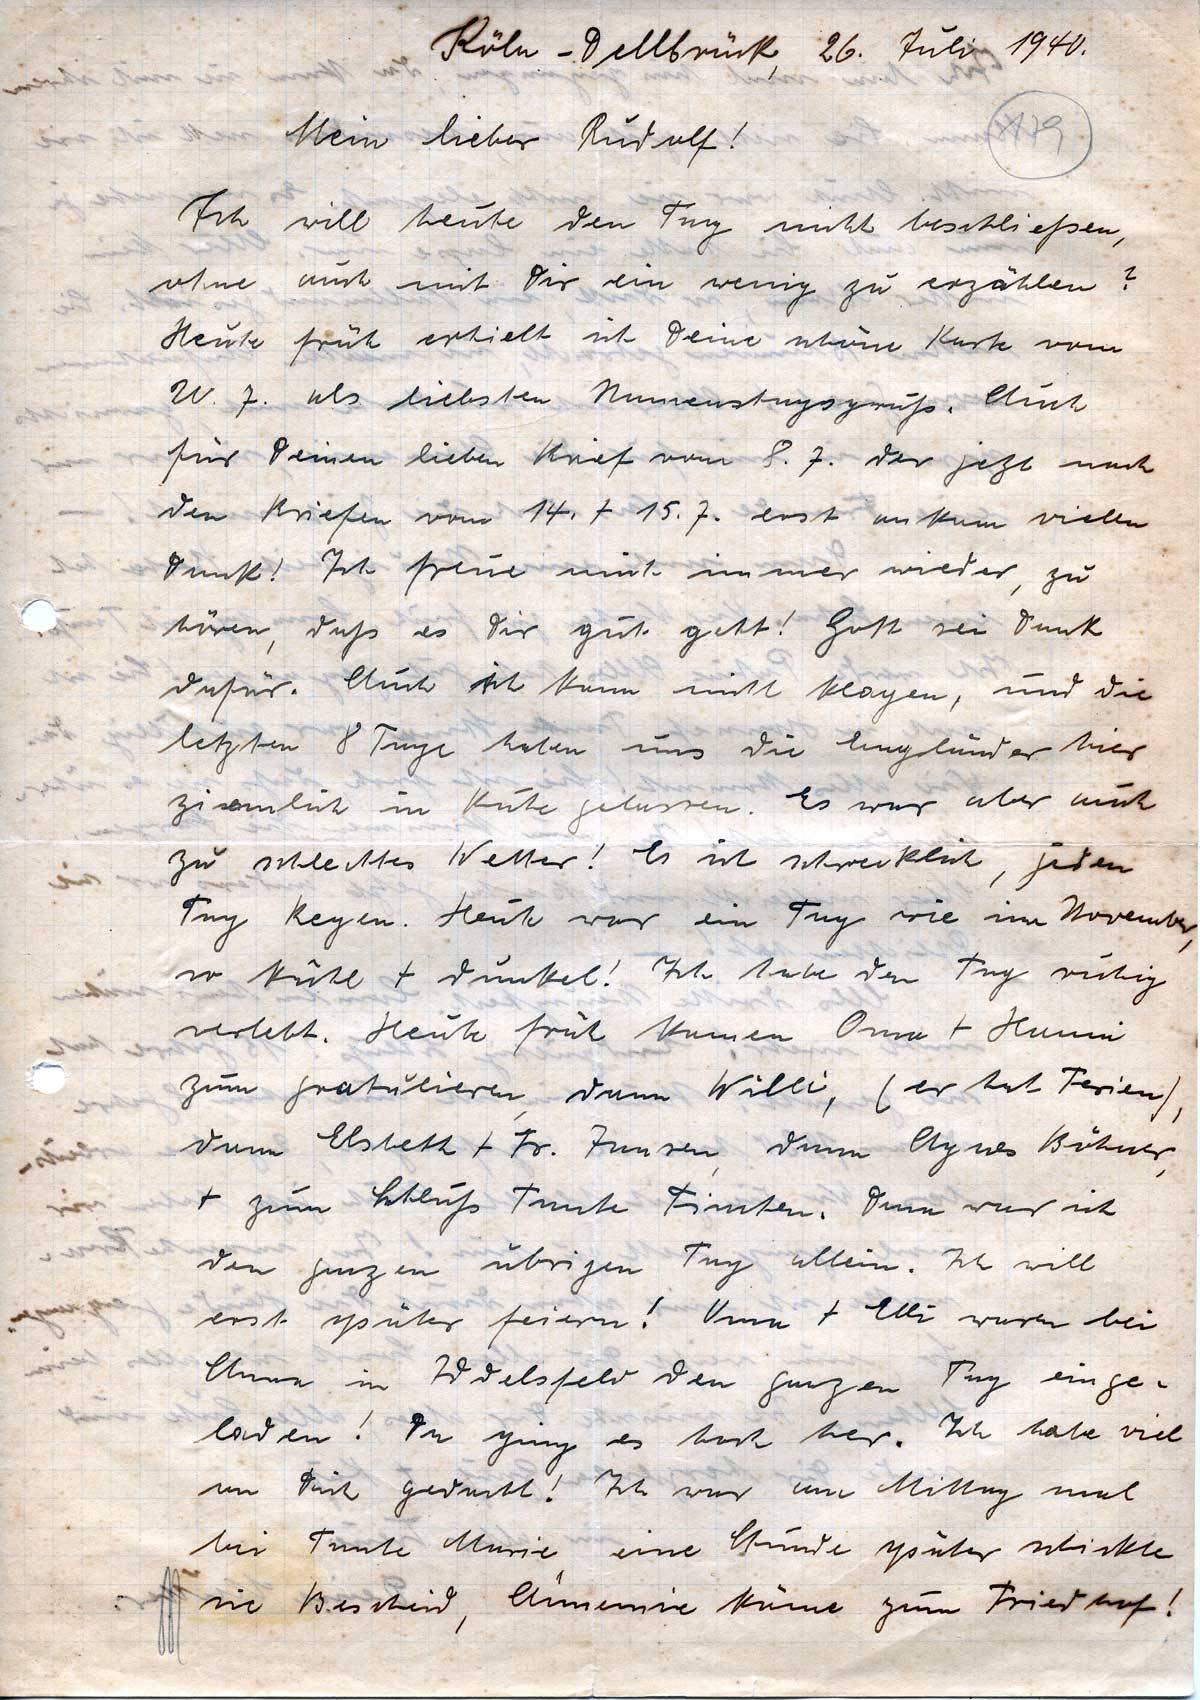 Köln-Dellbrück, 26. Juli 1940.
179
Mein lieber Rudolf!
Ich will heute den Tag nicht beschließen,
ohne auch mit Dir ein wenig zu erzählen?
Heute früh erhielt ich Deine schöne Karte vom
20. 7. als liebsten Namenstagsgruß. Auch
für Deinen lieben Brief vom 8. 7. der jetzt nach
den Briefen vom 14. + 15. 7. erst ankam vielen
Dank! Ich freue mich immer wieder, zu
hören, daß es Dir gut geht! Gott sei Dank
dafür. Auch ich kann nicht klagen, und die
letzten 8 Tage haben uns die Engländer hier
ziemlich in Ruhe gelassen. Es war aber auch
zu schlechtes Wetter! Es ist schrecklich, jeden
Tag Regen. Heute war ein Tag wie im November,
so kühl + dunkel! Ich habe den Tag ruhig
verlebt. Heute früh kamen Oma + Hanni
zum gratulieren, dann Willi, (er hat Ferien),
dann Elsbeth + Fr. Jansen, dann Agnes Böhner,
+ zum Schluß Tante Finchen. Dann war ich
den ganzen übrigen Tag allein. Ich will
erst später feiern! Oma + Elli waren bei
Anna in Iddelsfeld den ganzen Tag einge-
laden! Da ging es hoch her. Ich habe viel
an Dich gedacht! Ich war am Mittag mal
bei Tante Marie eine Stunde später schickte
sie Bescheid, Annemie käme zum Friedhof!